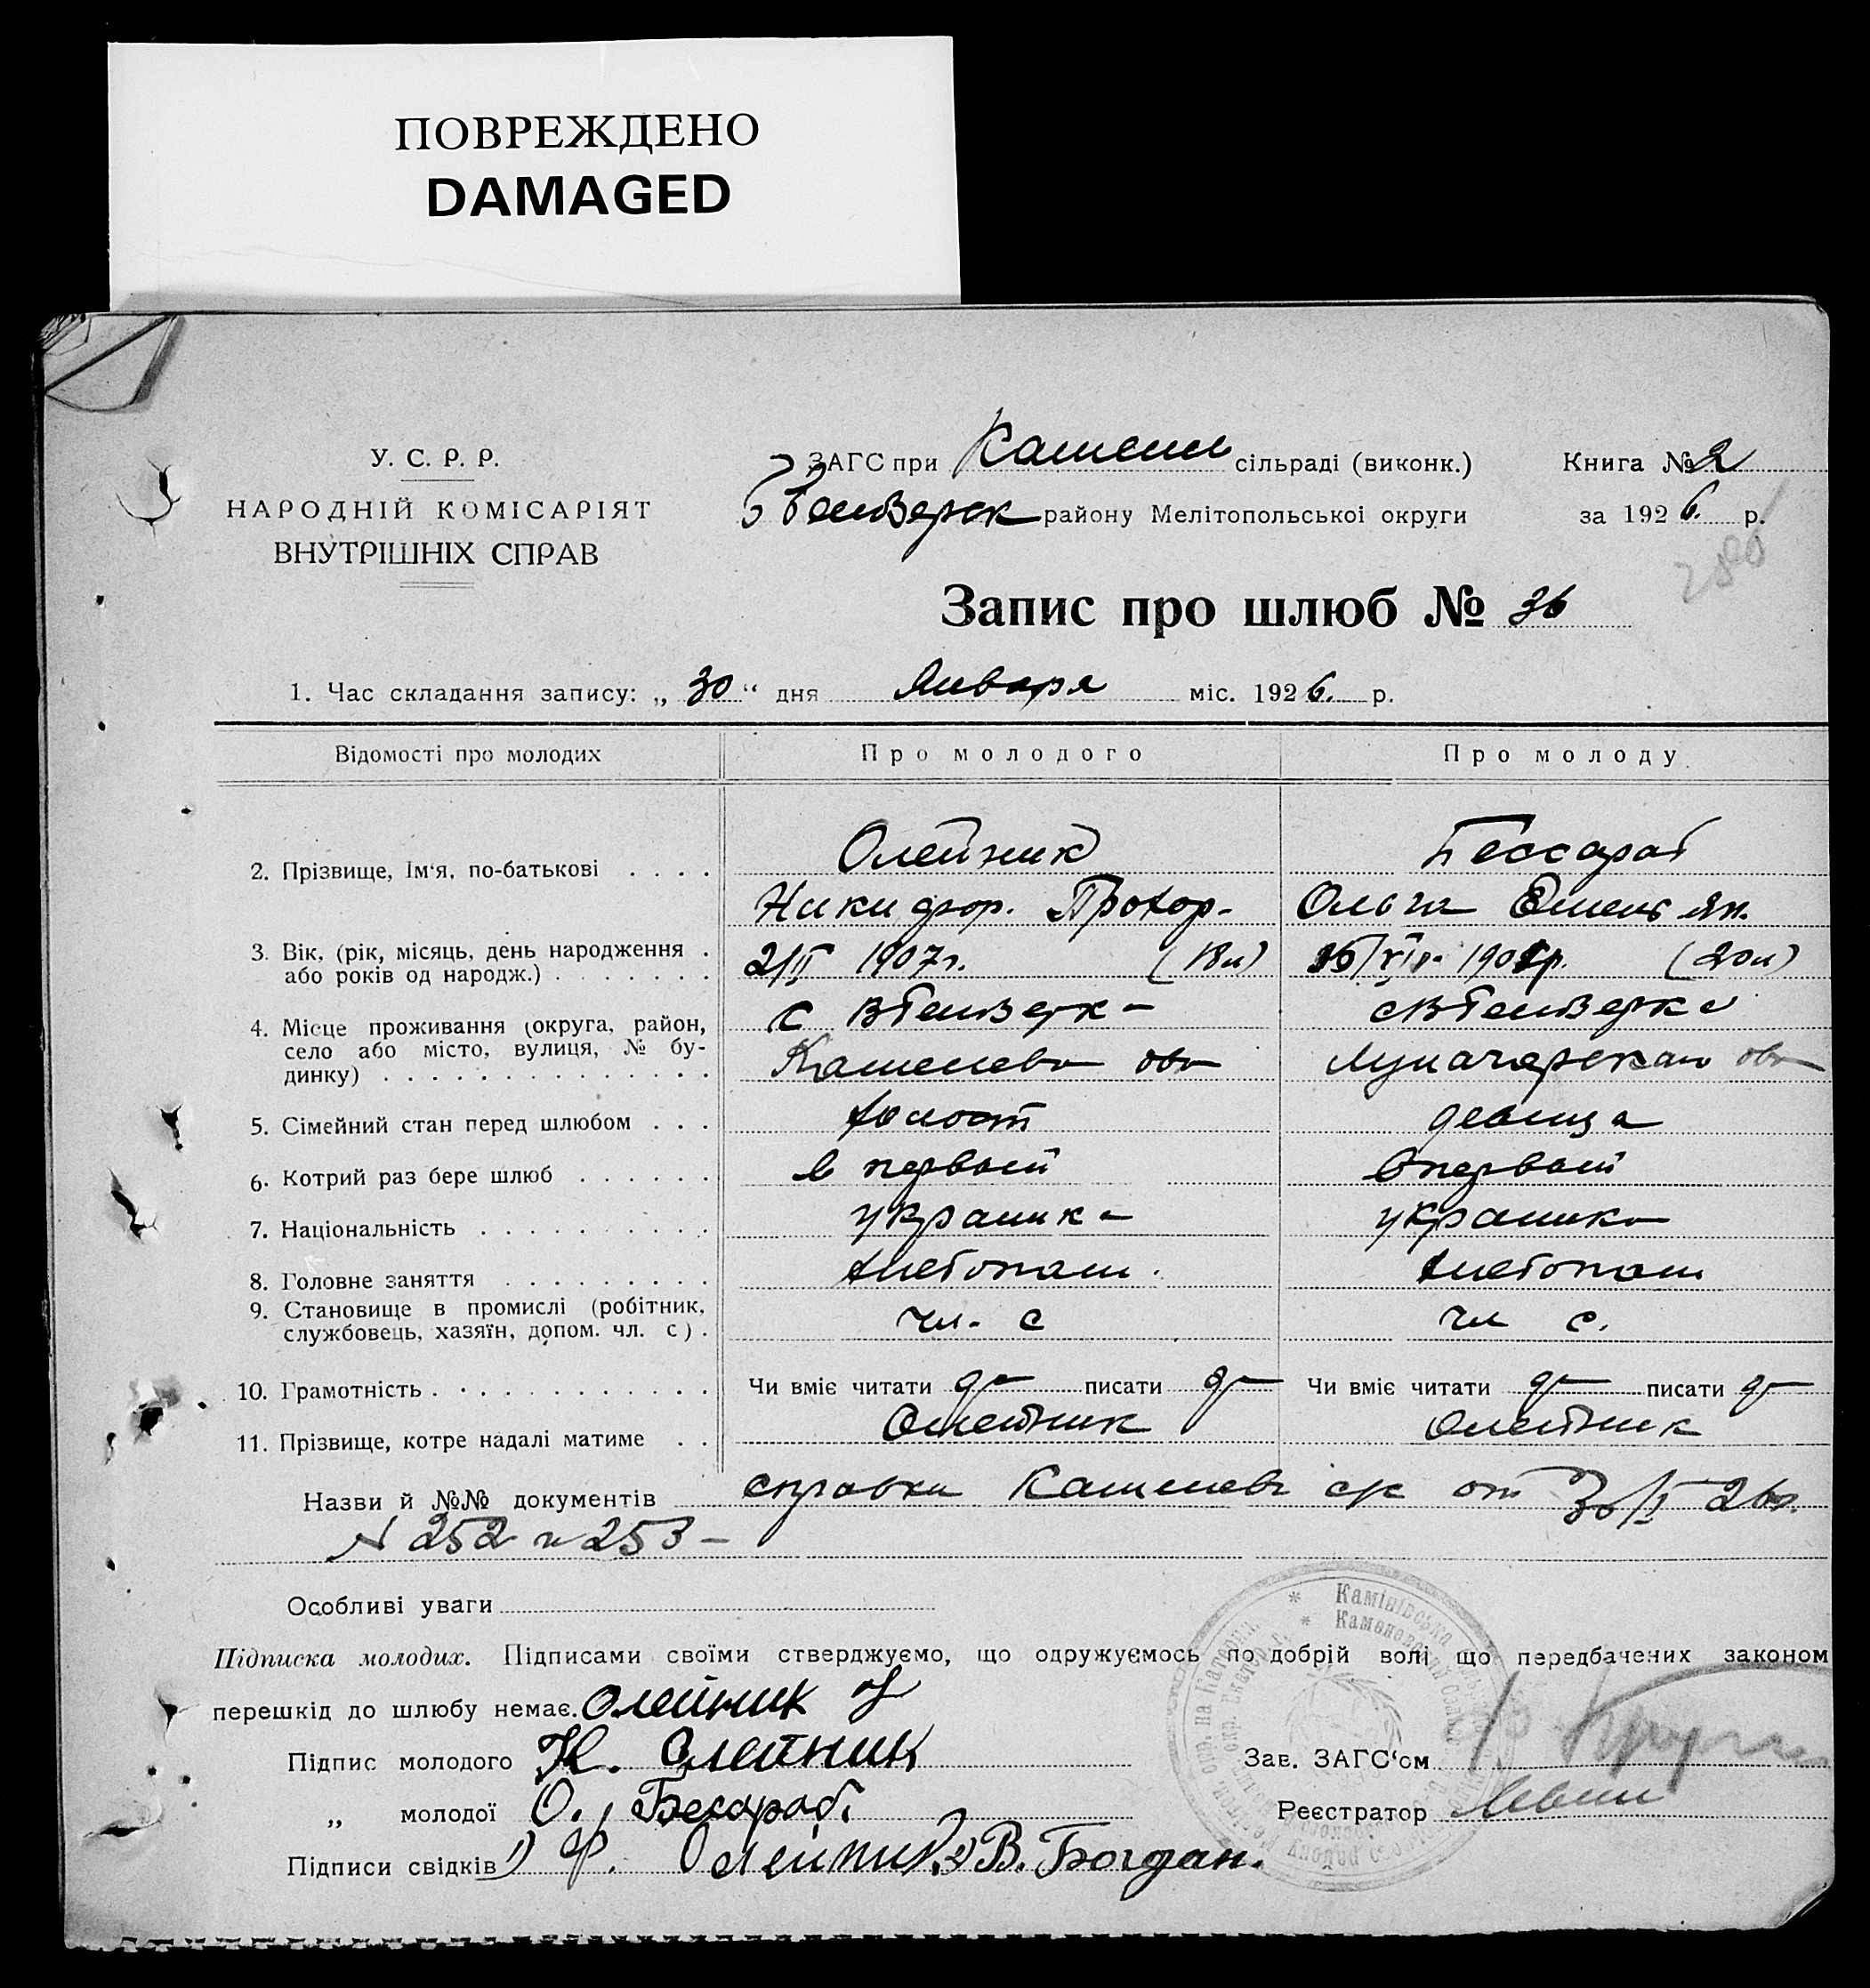 ПОВРЕЖДЕНО
DAMAGED
У. С. Р. Р.
НАРОДНІЙ КОМІСАРІЯТ
ВНУТРІШНІХ СПРАВ
ЗАГС при Камен сільраді (виконк.)
району Мелітопольської округи
Книга № 2
за 1926 р.
280
Запис про шлюб № 36
1. Час складання запису: „30“ дня Января міс. 1926. р.
Відомості про молодих Про молодого Про молоду
2. Прізвище, Ім'я, по-батькові . . . . Олейник Бессараб
Никифор. Прохор- Ольга Емельян.
3. Вік, (рік, місяць, день народження .
або років од народж.) . . . . . . . 2/II 1907г. (18л) (20л)
4. Місце проживання (округа, район,
село або місто, вулиця, № бу-
динку) . . . . . . . . . . . . . .
с ВБелозерка с ВБелозерка
Каменева Луначарская
5. Сімейний стан перед шлюбом . . . холост девица
6. Котрий раз бере шлюб . . . . . . в первый впервый
7. Національність . . . . . . . . . .
8. Головне заняття . . . . . . . . . хлебопаш. хлебопаш
9. Становище в промислі (робітник,
службовець, хазяїн, допом. чл. с) . чл. с чл с.
10. Грамотність . . . . . . . . . . . . Чи вміє читати да писати да Чи вміє читати да писати да
11. Прізвище, котре надалі матиме . . Олейник Олейник
Назви й №№ документів справки Каменев с/с от 30/I 26г.
N 252 и 253 -
Особливі уваги
Підписка молодих. Підписами своїми стверджуємо, що одружуємось по добрій волі що передбачених законом
перешкід до шлюбу немає. Олейник
Підпис молодого Н. Олейник
„ молодої О. Бесараб.
Підписи свідків 1) Ф. Олейник 2) В. Богдан.
Зав. ЗАГС'ом
Реєстратор Левин